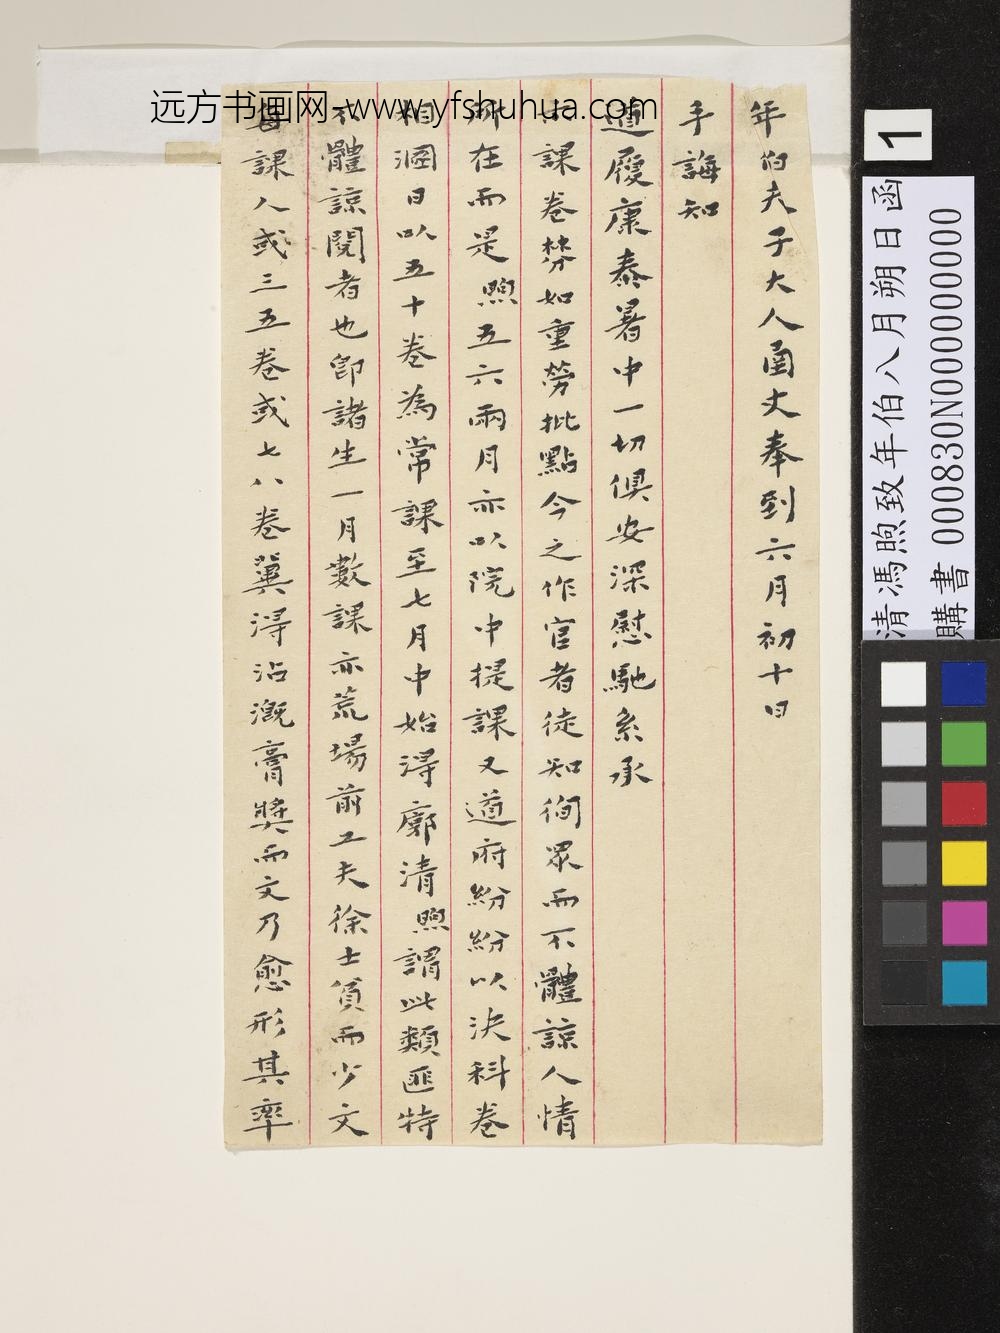 远方书画网-www.yfshuhua.com
年伯夫子大人函丈奉到六月初十日
手誨知
道履康泰暑中一切俱安深慰馳系承
課卷棼如重勞批點今之作官者徒知徇眾而不體諒人情
所在而是煦五六兩月亦以院中提課又道府紛紛以決科卷
相溷日以五十卷為常課至七月中始淂廓清煦謂此類匪特
不體諒閱者也即諸生一月數課亦荒場前工夫徐士負而少文
每課人或三五卷或七八卷冀淂沾溉膏獎而文乃愈形其率
1
清馮煦致年伯八月朔日函
購書 000830N000000000